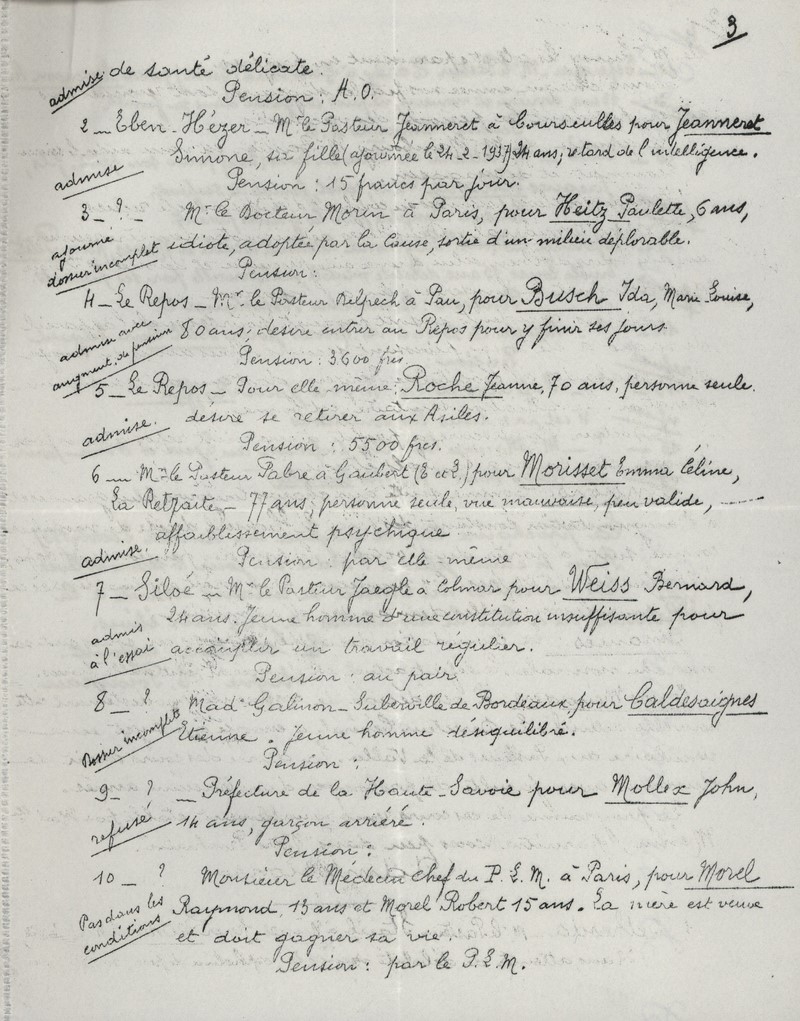 3
admise de santé délicate.
Pension : A.O.
2 _ Eben-Hézer _ Mr le Pasteur Jeanneret à Courseulles pour Jeanneret
Simone, sa fille (ajournée le 24-2-1937) 24 ans; retard de l'intelligence.
admise
Pension : 15 francs par jour.
3 _ ? _ Mr le Docteur Morin à Paris, pour Heitz Paulette, 6 ans,
ajourné
dossier incomplet
idiote, adoptée par la Cause, sortie d'un milieu déplorable.
Pension :
4 _ Le Repos _ Mr le Pasteur Delpech à Pau, pour Busch Ida, Marie-Louise,
admise avec
augment. de pension
80 ans; désire entrer au Repos pour y finir ses jours
Pension : 3600 frcs
5 _ Le Repos _ Pour elle-même : Roche Jeanne, 70 ans, personne seule.
admise.
désire se retirer aux Asiles.
Pension : 5500 frcs.
6 _ Mr le Pasteur Fabre à Gaubert (E et L) pour Morisset Emma Céline,
La Retraite _ 77 ans; personne seule, vue mauvaise, peu valide,
affaiblissement psychique
admise.
Pension : par elle-même
7 _ Siloé _ Mr le Pasteur Jaeglé à Colmar pour Weiss Bernard,
24 ans. Jeune homme d'une constitution insuffisante pour
admis
à l'essai
accomplir un travail régulier.
Pension : au pair
8 _ ? Mad Galinon-Suberville de Bordeaux, pour Caldesaignes
Dossier incomplet
Etienne. Jeune homme déséquilibré.
Pension :
9 _ ? _ Préfecture de la Haute-Savoie pour Mollex John,
refusé
14 ans, garçon arriéré.
Pension :
10 _ ? Monsieur le Médecin chef du P.L.M. à Paris, pour Morel
Pas dans les
conditions
Raymond, 13 ans et Morel Robert 15 ans. La mère est veuve
et doit gagner sa vie.
Pension : par le P.L.M.